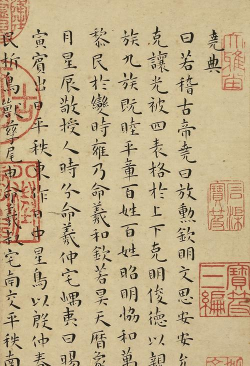 堯典
曰若稽古帝堯曰放勳欽明文思安安允
克讓光被四表格于上下克明俊德以親
族九族既睦平章百姓百姓昭明協和萬
黎民於變時雍乃命羲和欽若昊天曆象
月星辰敬授人時分命羲仲宅嵎夷曰暘
寅賓出日平秩東作日中星鳥以殷仲春
民析鳥獸孳尾申命羲叔宅南交平秩南
石渠寶笈
寶笈三編